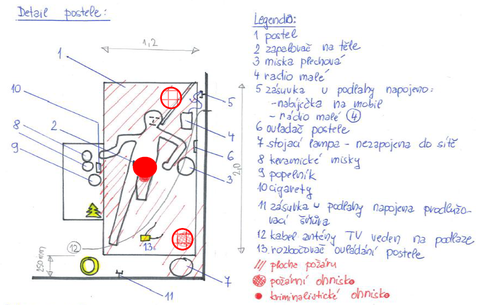 Detail postele:
1,2
2,0
250 mm
1
10
2
8
9
5
4
6
3
12
13
7
11
Legenda:
1 postel
2 zapalovač na těle
3 miska plechová
4 radio malé
5 zásuvka u podlahy napojeno:
- nabíječka na mobil
- rádio malé 4
6 ovladač postele
7 stojací lampa - nezapojena do sítě
8 keramické misky
9 popelník
10 cigarety
11 zásuvka u podlahy napojena prodlužo-
vací šňůra
12 kabel antény TV veden na podlaze
13 rozbočovač ovládání postele
plocha požáru
požární ohnisko
kriminalistické ohnisko